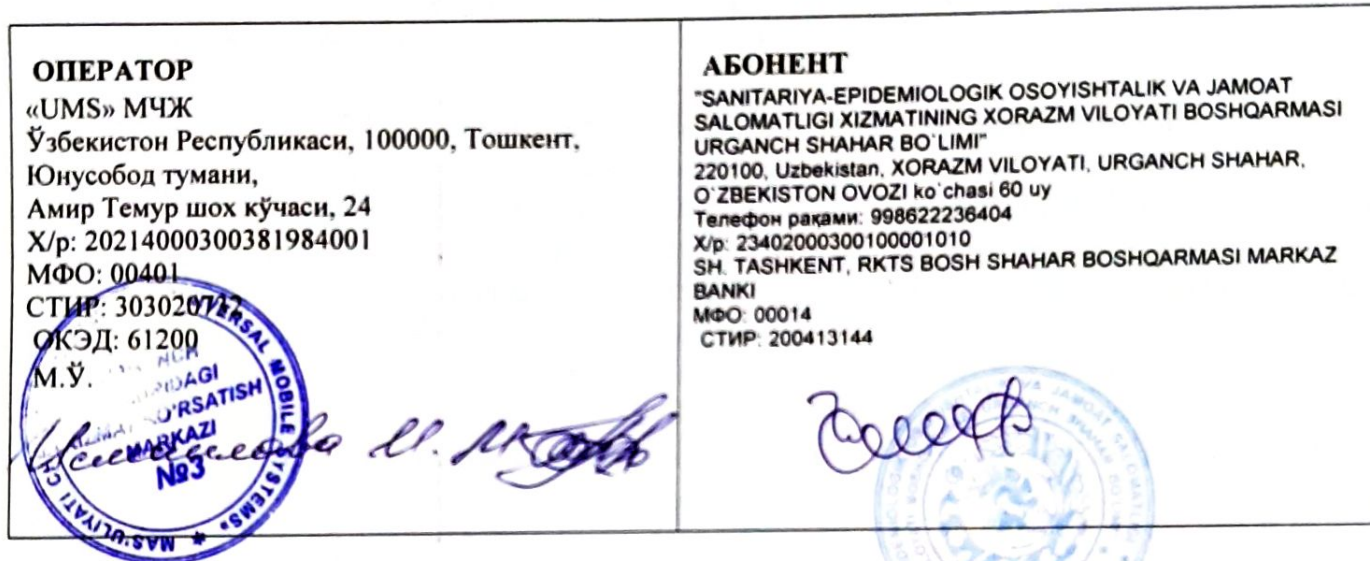 ОПЕРАТОР
«UMS» МЧЖ
Ўзбекистон Республикаси, 100000, Тошкент,
Юнусобод тумани,
Амир Темур шох кўчаси, 24
Х/р: 20214000300381984001
МФО: 00401
СТИР: 303020732
ОКЭД: 61200
М.Ў.
MARKAZI
№3
АБОНЕНТ
"SANITARIYA-EPIDEMIOLOGIK OSOYISHTALIK VA JAMOAT
SALOMATLIGI XIZMATINING XORAZM VILOYATI BOSHQARMASI
URGANCH SHAHAR BO`LIMI"
220100, Uzbekistan, XORAZM VILOYATI, URGANCH SHAHAR,
O`ZBEKISTON OVOZI ko`chasi 60 uy
Телефон рақами: 998622236404
Х/р: 23402000300100001010
SH. TASHKENT, RKTS BOSH SHAHAR BOSHQARMASI MARKAZ
BANKI
МФО: 00014
СТИР: 200413144